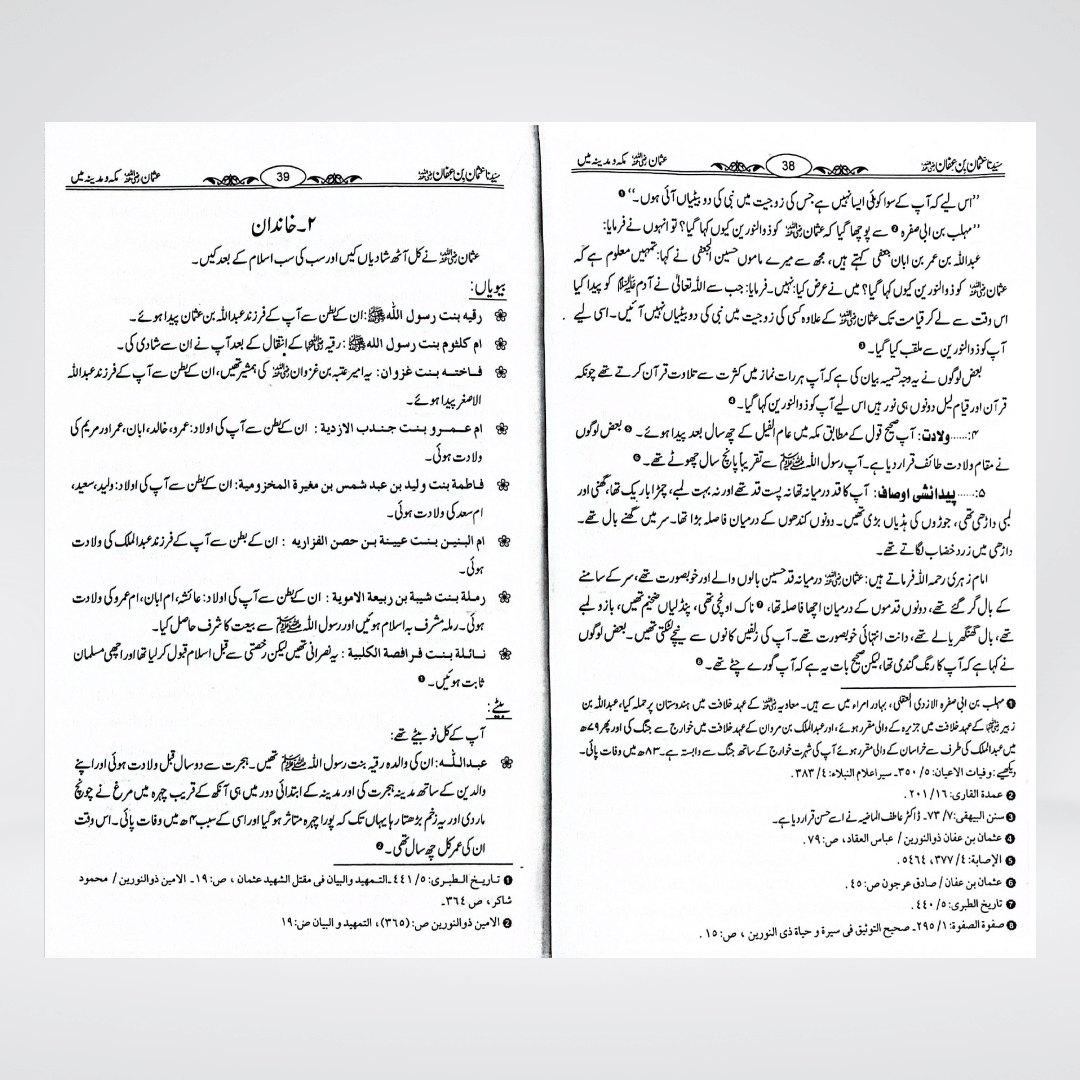 سیّدنا عثمان بن عفان رضی اللہ عنہ 38 عثمان رضی اللہ عنہ مکہ و مدینہ میں
’’اس لیے کہ آپ کے سوا کوئی ایسا نہیں ہے جس کی زوجیت میں نبی کی دو بیٹیاں آئی ہوں۔‘‘ ❶
’’مہلب بن ابی صفرہ ❷ سے پوچھا گیا کہ عثمان رضی اللہ عنہ کو ذوالنورین کیوں کہا گیا؟ تو انہوں نے فرمایا:
عبداللہ بن عمر بن ابان جعفی کہتے ہیں، مجھ سے میرے ماموں حسین الجعفی نے کہا: تمہیں معلوم ہے کہ
عثمان رضی اللہ عنہ کو ذوالنورین کیوں کہا گیا؟ میں نے عرض کیا: نہیں۔ فرمایا: جب سے اللہ تعالیٰ نے آدم علیہ السلام کو پیدا کیا
اس وقت سے لے کر قیامت تک عثمان رضی اللہ عنہ کے علاوہ کسی کی زوجیت میں نبی کی دو بیٹیاں نہیں آئیں۔ اسی لیے
آپ کو ذوالنورین سے ملقب کیا گیا۔ ❸
بعض لوگوں نے یہ وجہ تسمیہ بیان کی ہے کہ آپ ہر رات نماز میں کثرت سے تلاوت قرآن کرتے تھے چونکہ
قرآن اور قیام لیل دونوں ہی نور ہیں اس لیے آپ کو ذوالنورین کہا گیا۔ ❹
۴:...... ولادت: آپ صحیح قول کے مطابق مکہ میں عام الفیل کے چھ سال بعد پیدا ہوئے۔ ❺ بعض لوگوں
نے مقام ولادت طائف قرار دیا ہے۔ آپ رسول اللہ ﷺ سے تقریباً پانچ سال چھوٹے تھے۔ ❻
۵:...... پیدائشی اوصاف: آپ کا قد درمیانہ تھا نہ پست قد تھے اور نہ بہت لمبے، چمڑا باریک تھا، گھنی اور
لمبی داڑھی تھی، جوڑوں کی ہڈیاں بڑی تھیں۔ دونوں کندھوں کے درمیان فاصلہ بڑا تھا۔ سر میں گھنے بال تھے۔
داڑھی میں زرد خضاب لگاتے تھے۔
امام زہری رحمہ اللہ فرماتے ہیں: عثمان رضی اللہ عنہ درمیانہ قد حسین بالوں والے اور خوبصورت تھے، سر کے سامنے
کے بال گر گئے تھے، دونوں قدموں کے درمیان اچھا فاصلہ تھا، ❼ ناک اونچی تھی، پنڈلیاں ضخیم تھیں، بازو لمبے
تھے، بال گھنگھریالے تھے، دانت انتہائی خوبصورت تھے۔ آپ کی زلفیں کانوں سے نیچے لٹکتی تھیں۔ بعض لوگوں
نے کہا ہے کہ آپ کا رنگ گندمی تھا، لیکن صحیح بات یہ ہے کہ آپ گورے چٹے تھے۔ ❽
❶ مہلب بن ابی صفرہ الازدی العتقلی، بہادر امراء میں سے ہیں۔ معاویہ رضی اللہ عنہ کے عہد خلافت میں ہندوستان پر حملہ کیا، عبداللہ بن
زبیر رضی اللہ عنہما کے عہد خلافت میں جزیرہ کے والی مقرر ہوئے، اور عبدالملک بن مروان کے عہد خلافت میں خوارج سے جنگ کی اور پھر ۷۹ھ
میں عبدالملک کی طرف سے خراسان کے والی مقرر ہوئے آپ کی شہرت خوارج کے ساتھ جنگ سے وابستہ ہے۔ ۸۳ھ میں وفات پائی۔
دیکھیے: وفیات الاعیان: ۵/ ۳۵۰۔ سیر اعلام النبلاء: ۴/ ۳۸۳۔
❷ عمدة القاری: ۱۶/ ۲۰۱.
❸ سنن البیهقی: ۷/ ۷۳۔ ڈاکٹر عاطف الماضیہ نے اسے حسن قرار دیا ہے۔
❹ عثمان بن عفان ذوالنورین / عباس العقاد، ص: ۷۹.
❺ الإصابة: ۴/ ۳۷۷، ۵۴۶۴.
❻ عثمان بن عفان / صادق عرجون ص: ۴۵.
❼ تاریخ الطبری: ۵/ ۴۴۰.
❽ صفوة الصفوة: ۱/ ۲۹۵۔ صحیح التوثیق فی سیرة و حیاة ذی النورین ، ص: ۱۵.
سیّدنا عثمان بن عفان رضی اللہ عنہ 39 عثمان رضی اللہ عنہ مکہ و مدینہ میں
۲۔ خاندان
عثمان رضی اللہ عنہ نے کل آٹھ شادیاں کیں اور سب کی سب اسلام کے بعد کیں۔
بیویاں:
رقیہ بنت رسول اللہ ﷺ: ان کے بطن سے آپ کے فرزند عبداللہ بن عثمان پیدا ہوئے۔
ام کلثوم بنت رسول اللہ ﷺ: رقیہ رضی اللہ عنہا کے انتقال کے بعد آپ نے ان سے شادی کی۔
فاختہ بنت غزوان: یہ امیر عتبہ بن غزوان رضی اللہ عنہ کی ہمشیر تھیں، ان کے بطن سے آپ کے فرزند عبداللہ
الاصغر پیدا ہوئے۔
ام عمرو بنت جندب الازدیة: ان کے بطن سے آپ کی اولاد: عمرو، خالد، ابان، عمر اور مریم کی
ولادت ہوئی۔
فاطمة بنت ولید بن عبد شمس بن مغیرة المخزومیة: ان کے بطن سے آپ کی اولاد: ولید، سعید،
ام سعد کی ولادت ہوئی۔
ام البنین بنت عیینة بن حصن الفزاریه: ان کے بطن سے آپ کے فرزند عبدالملک کی ولادت
ہوئی۔
رملة بنت شیبة بن ربیعة الامویة: ان کے بطن سے آپ کی اولاد: عائشہ، ام ابان، ام عمرو کی ولادت
ہوئی۔ رملہ مشرف بہ اسلام ہوئیں اور رسول اللہ ﷺ سے بیعت کا شرف حاصل کیا۔
نائلة بنت فرافصة الکلبیة: یہ نصرانی تھیں لیکن رخصتی سے قبل اسلام قبول کر لیا تھا اور اچھی مسلمان
ثابت ہوئیں۔ ❶
بیٹے:
آپ کے کل نو بیٹے تھے:
عبداللہ: ان کی والدہ رقیہ بنت رسول اللہ ﷺ تھیں۔ ہجرت سے دو سال قبل ولادت ہوئی اور اپنے
والدین کے ساتھ مدینہ ہجرت کی اور مدینہ کے ابتدائی دور میں ہی آنکھ کے قریب چہرہ میں مرغ نے چونچ
مار دی اور یہ زخم بڑھتا رہا یہاں تک کہ پورا چہرہ متاثر ہو گیا اور اسی کے سبب ۴ھ میں وفات پائی۔ اس وقت
ان کی عمر کل چھ سال تھی۔ ❷
❶ تاریخ الطبری: ۵/ ۴۴۱۔ التمهید والبیان فی مقتل الشهید عثمان ، ص: ۱۹۔ الامین ذوالنورین / محمود
شاکر، ص ۳۶۴۔
❷ الامین ذوالنورین ص: (۳۶۵)، التمهید و البیان ص: ۱۹